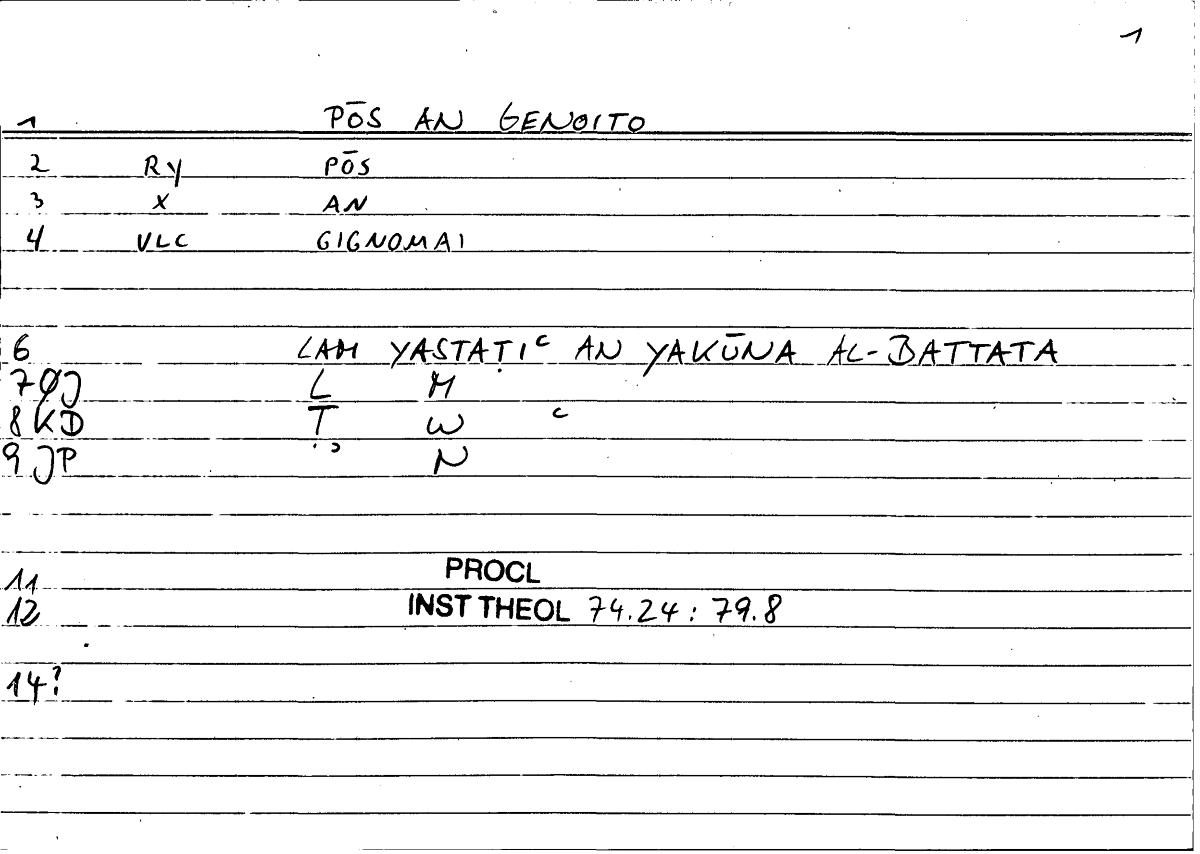 1
1 PŌS AN GENOITO
2 Ry PŌS
3 X AN
4 VLC GIGNOMAI
6 LAM YASTAṬIᶜ AN YAKŪNA AL-BATTATA
7 ØJ L M
8 KD Ṭ W ᶜ
9 JP ʾ N
11 PROCL
12 INST THEOL 74.24 : 79.8
14?